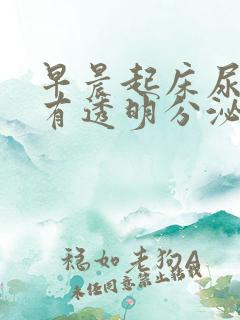 早晨起床尿
有透明分泌
福如老狗A
未经同意禁止转载